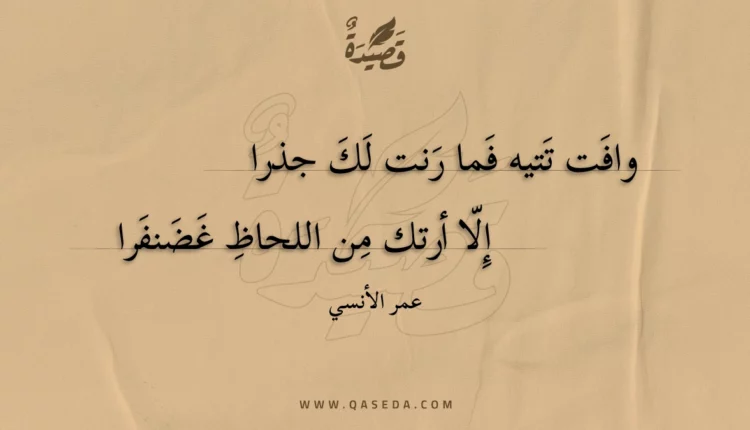 قَصِيْدَةٌ
وافَت تَتيه فَما رَنت لَكَ جذرا
إِلّا أرتك مِن اللحاظِ غَضَنفَرا
عمر الأنسي
WWW.QASEDA.COM